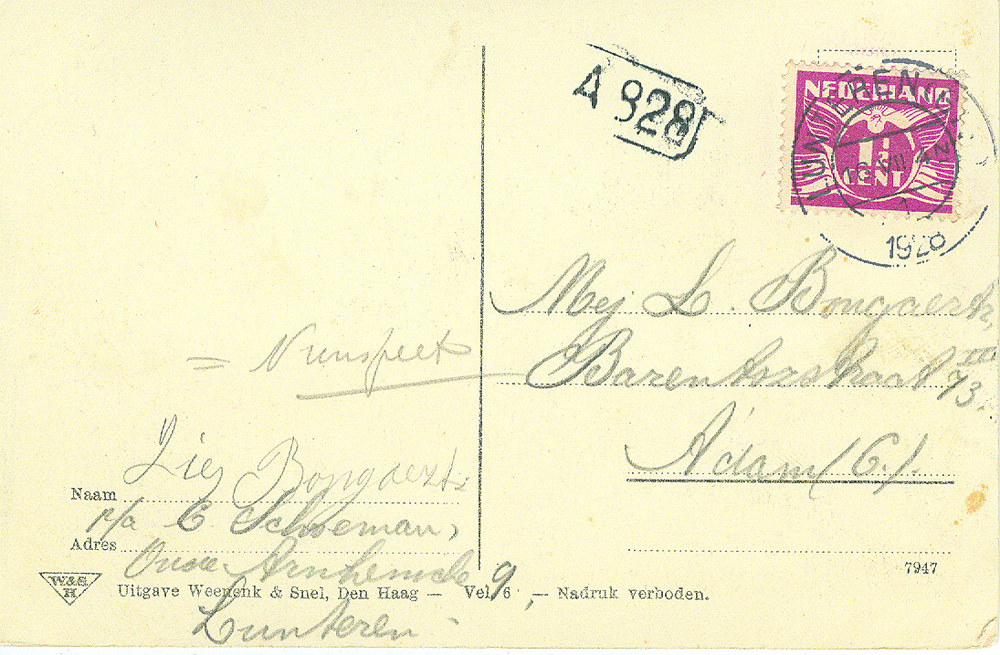 A 828
NEDERLAND
1½
CENT
LUNTEREN
16 VII
1928
Mej L. Bongaerts,
Barentszstraat 73 III
A'dam (C.).
= Nunspeet
Lies Bongaerts
Naam
p/a C Schoeman,
Adres
Oude Arnhemsche
Lunteren
7947
W&S.
H
Uitgave Weenenk & Snel, Den Haag — Vel 6 9, — Nadruk verboden.